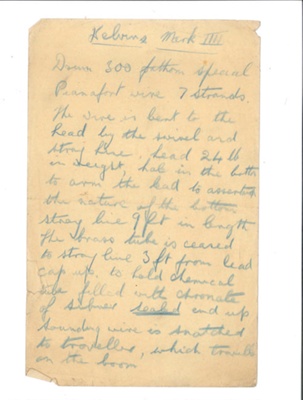 Kelvins Mark IIII
Drum 300 fathom special
Pianafort wire 7 strands.
The wire is bent to the
lead by the swivel and
stray line, lead 24 lb
in weight, hole in the bottom
to arm the lead to assertain
the nature of the bottom
stray line 9 ft in length
The brass tube is ceared
to stray line 3 ft from lead
cap up, to hold chemical
tube filled with chromate
of silver sealed end up
sounding wire is snatched
to traveller, which travells
on the boom